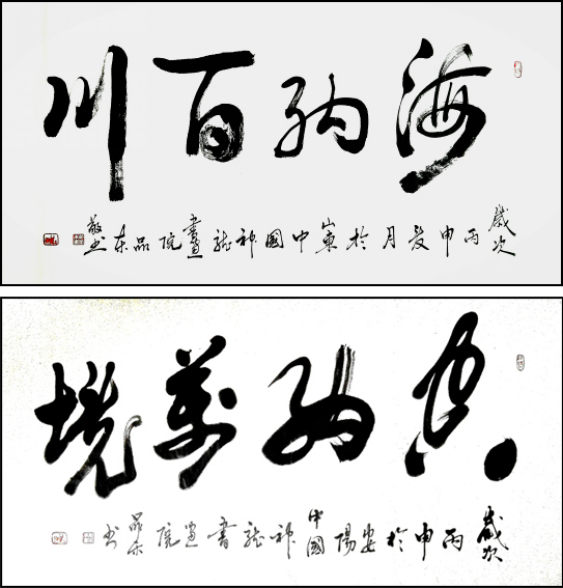 海納百川
歲次丙申夏月於山東中國神龍書畫院品東敬書
空納萬境
歲次丙申於安陽中國神龍書畫院品東書